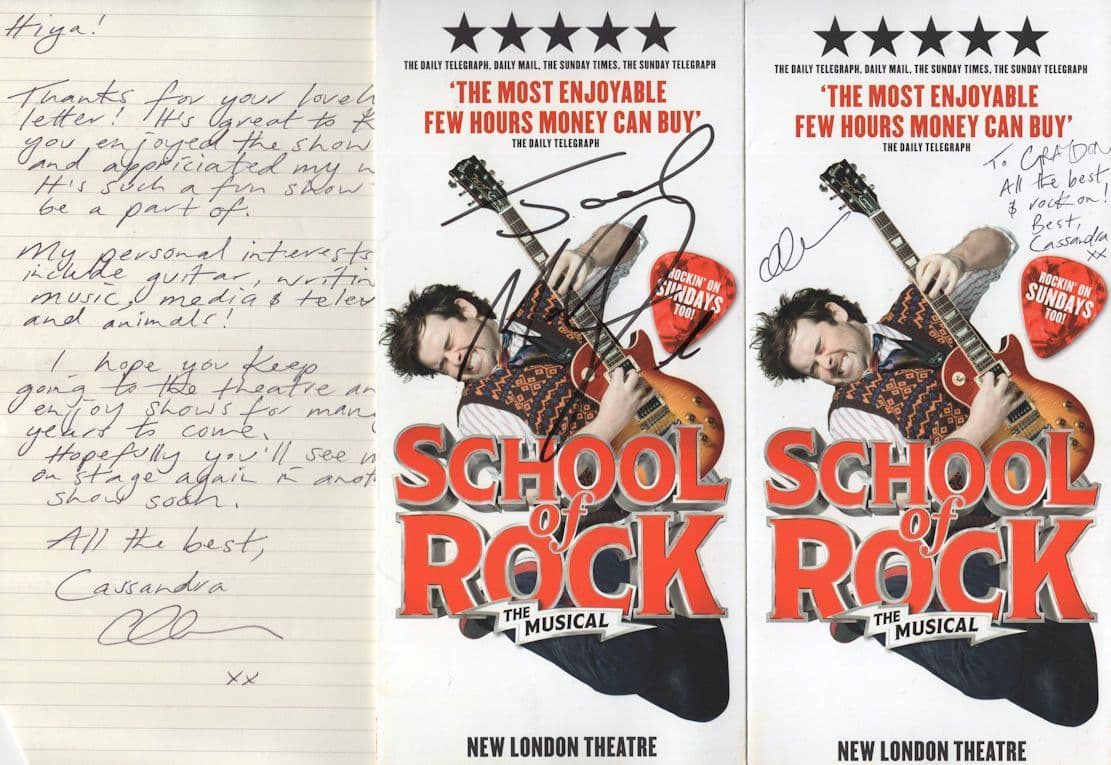 Hiya!
Thanks for your lovel
letter! It's great to k
you enjoyed the show
and appriciated my w
It's such a fun show
be a part of.
My personal interests
include guitar, writin
music, media & telev
and animals!
I hope you keep
going to the theatre an
enjoy shows for man
years to come.
Hopefully you'll see m
on stage again in anot
show soon.
All the best,
Cassandra
xx
THE DAILY TELEGRAPH, DAILY MAIL, THE SUNDAY TIMES, THE SUNDAY TELEGRAPH
'THE MOST ENJOYABLE
FEW HOURS MONEY CAN BUY'
THE DAILY TELEGRAPH
ROCKIN' ON
SUNDAYS
TOO!
SCHOOL
of
ROCK
THE
MUSICAL
NEW LONDON THEATRE
THE DAILY TELEGRAPH, DAILY MAIL, THE SUNDAY TIMES, THE SUNDAY TELEGRAPH
'THE MOST ENJOYABLE
FEW HOURS MONEY CAN BUY'
THE DAILY TELEGRAPH
To
All the best
& rock on!
Best,
Cassandra
xx
ROCKIN' ON
SUNDAYS
TOO!
SCHOOL
of
ROCK
THE
MUSICAL
NEW LONDON THEATRE